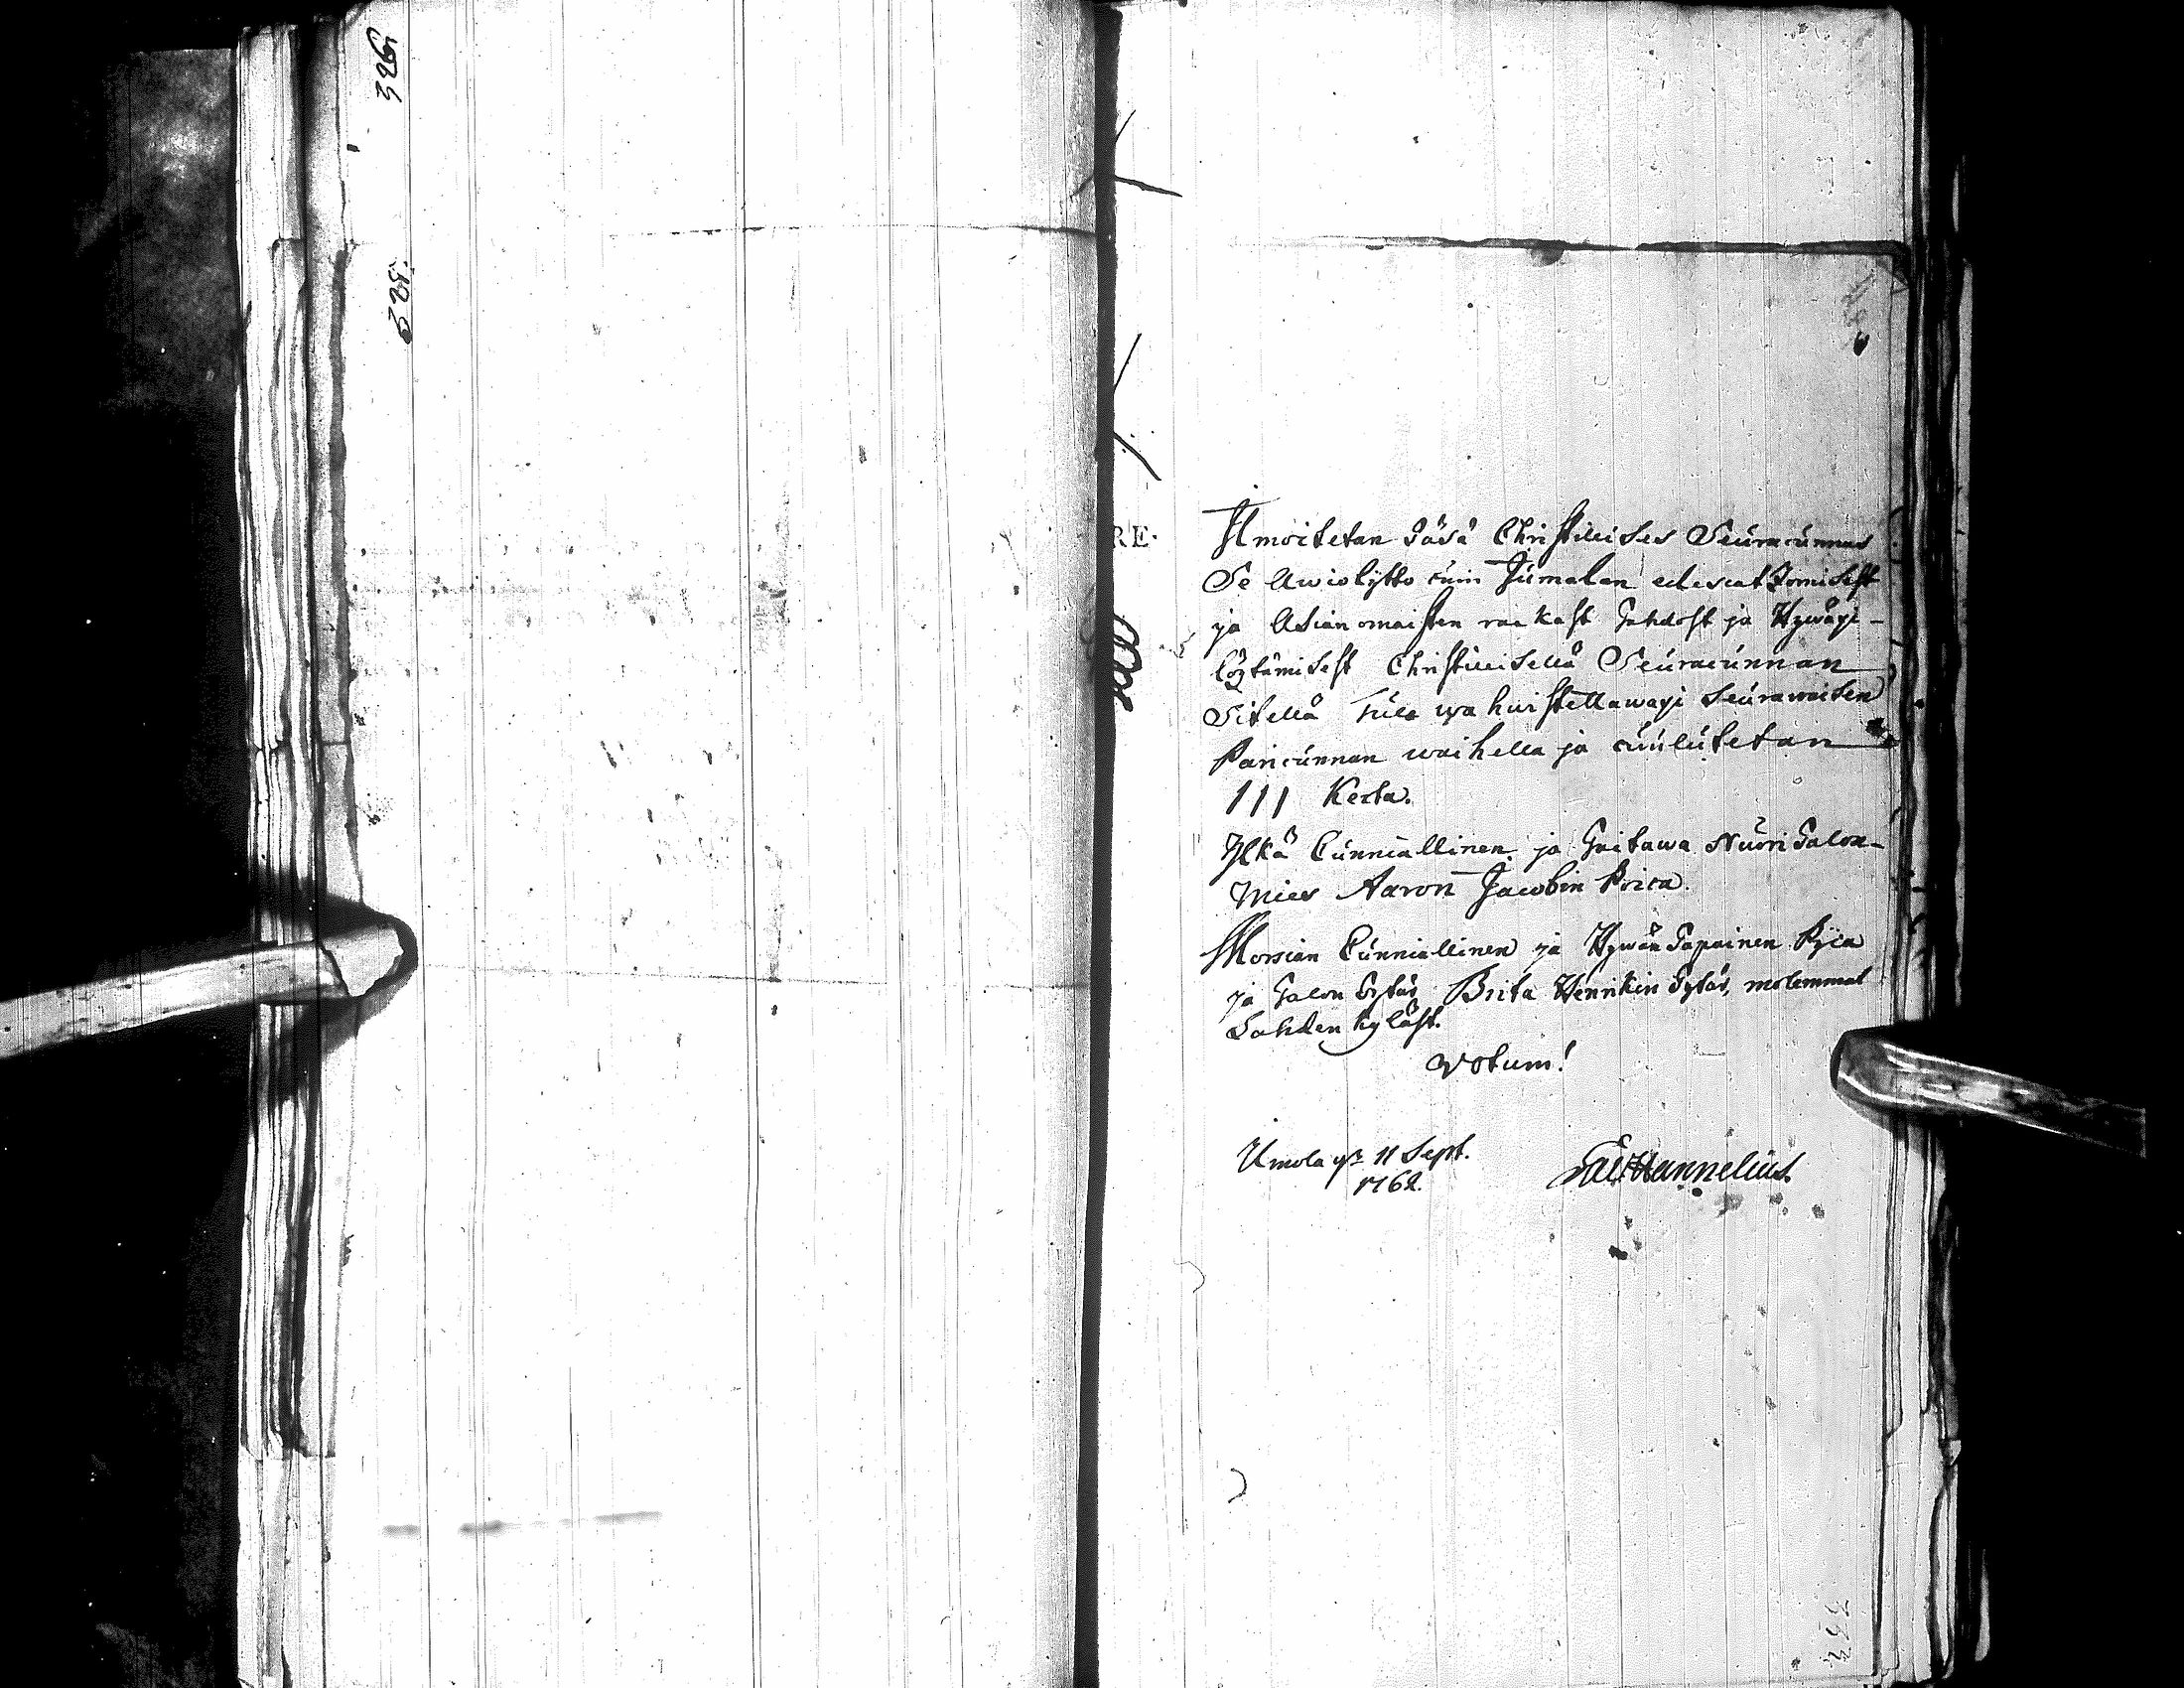 326
327
RE.
Ilmoitetan Säsä Christillises Seuracunnas
Se Awiokytto cuin Jumalan edescatzomisest
ja Asianomaisten rackast Tahdost ja Hywäxi-
löytämisest Christillisellä Seuracunnan
Sitellä Tule wahwistettawaxi seurawaisen
Paricunnan waihella ja cuulutetan
III Kerta.
Ylkä Cunniallinen ja Taitawa Nuori Talon-
Mies Aaron Jacobin Poica.
Morsian Cunniallinen ja Hywän Tapainen Pyca
ja Talon tytär Brita Henrikin Tytär, molemmat
Lahden kyläst.
Votum!
Umola 11 Sept.
1762.
Hannelius.